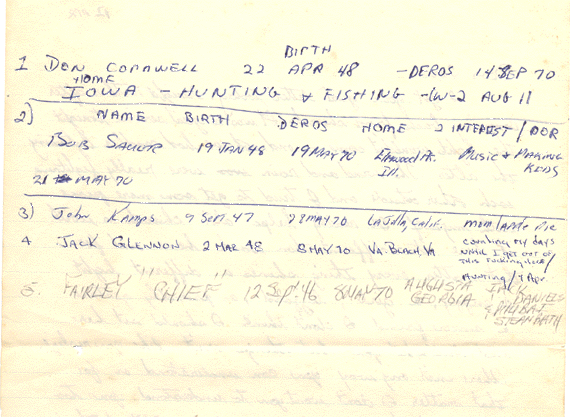 BIRTH
1 DON CORNWELL 22 APR 48 -DEROS 14 SEP 70
HOME
IOWA - HUNTING & FISHING -CW-2 AUG 11
2) NAME BIRTH DEROS HOME 2 INTEREST / DOR
BOB SAUER 19 JAN 48 19 MAY 70 Elmwood Pk. Ill. MUSIC & MAKING KIDS
21 MAY 70
3) John Kamps 9 SEPT 47 28 MAY 70 LaJolla, Calif. mom/apple pie
4 JACK GLENNON 2 MAR 48 8 MAY 70 VA. BEACH, VA counting my days
UNTIL I get out of
this fucking place/
HUNTING / 7 Apr.
" " "
5. FAIRLEY CHIEF 12 Sept. 46 8 MAY 70 AUGUSTA GEORGIA JACK DANIELS
STEAM BATH